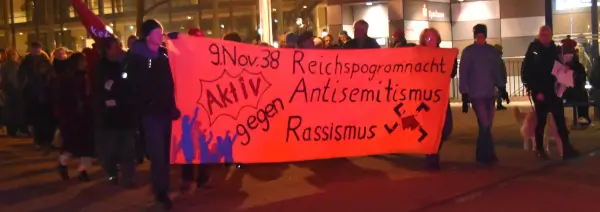 9. Nov. 38 Reichspogromnacht
Aktiv
gegen
Antisemitismus
Rassismus